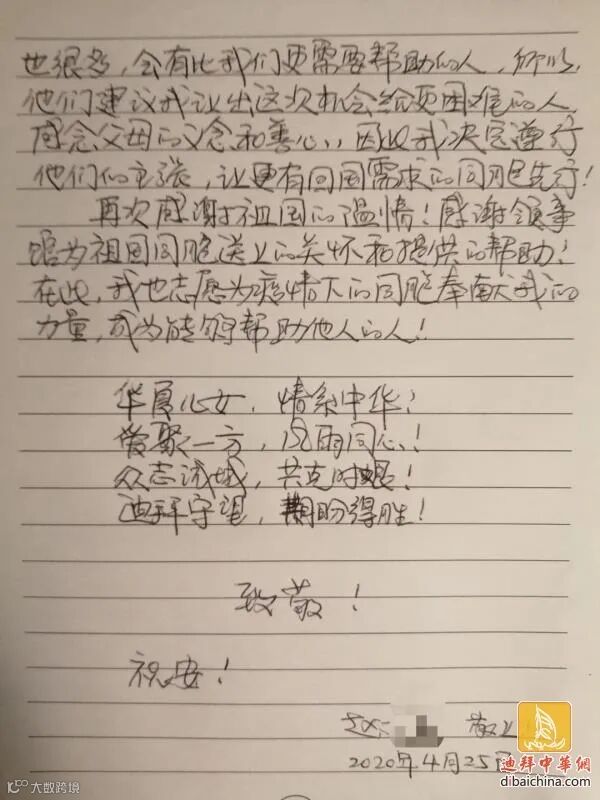 也很多，会有比我们更需要帮助的人，所以
他们建议我让出这次机会给更困难的人
感念父母的义念和善心，因此我决定遵行
他们的主张，让更有回国需求的同胞先行！
再次感谢祖国的温情！感谢领事
馆为祖国同胞送上的关怀和提供的帮助！
在此，我也志愿为疫情下的同胞奉献我的
力量，成为能够帮助他人的人！
华夏儿女，情系中华！
爱聚一方，风雨同心！
众志诚城，共克时艰！
迪拜守望，期盼得胜！
致敬！
祝安！
赵 敬上
2020年4月25日
迪拜中華網
dibaichina.com
大数跨境